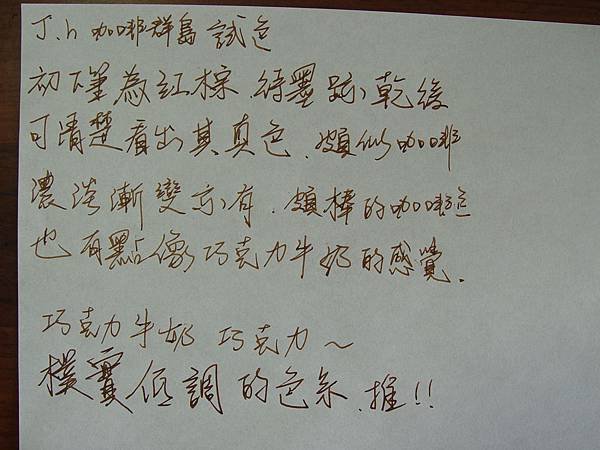 J.h 咖啡群島 試色
初下筆為紅棕.待墨跡乾後
可清楚看出其真色.頗似咖啡
濃淡漸變亦有.頗棒的咖啡色
也有點像巧克力牛奶的感覺.
巧克力牛奶 巧克力～
樸實低調的色系.推!!